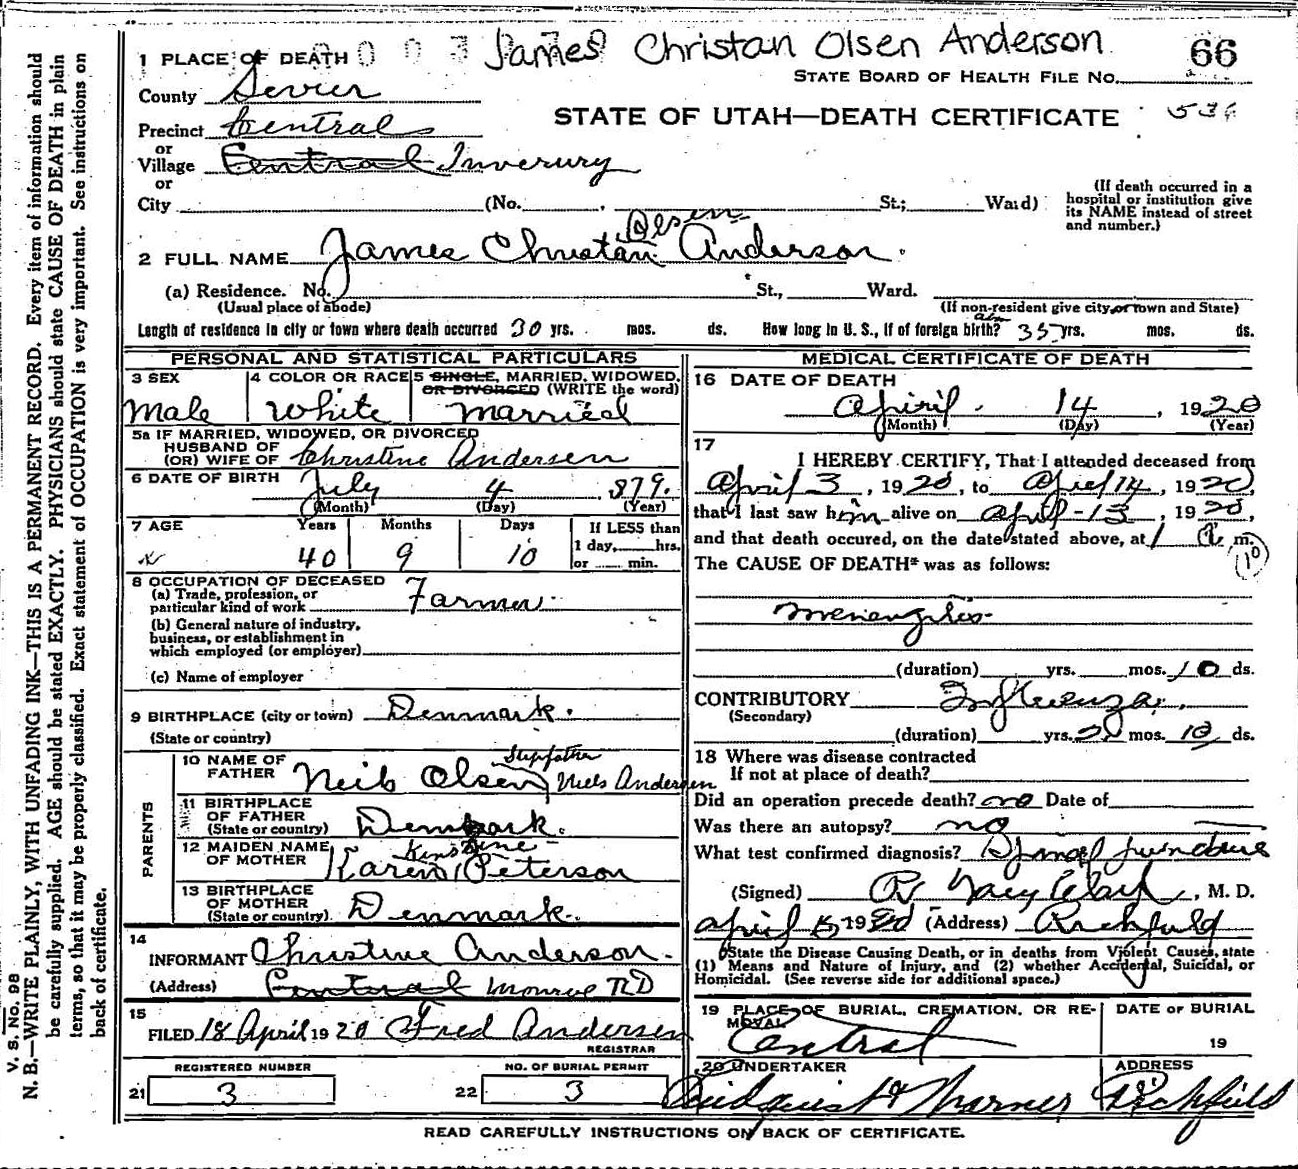 James Christan Olsen Anderson
66
1 PLACE OF DEATH
STATE BOARD OF HEALTH FILE No.
County Sevier
STATE OF UTAH—DEATH CERTIFICATE
Precinct Central
or
Village Central Inverury
or
City (No. , St.; Ward)
(If death occurred in a
hospital or institution give
its NAME instead of street
and number.)
Olsen
2 FULL NAME James Christan Anderson.
(a) Residence. No. St., Ward.
(Usual place of abode) (If non-resident give city or town and State)
Length of residence in city or town where death occurred 30 yrs. mos. ds. How long in U. S., if of foreign birth? 35 yrs. mos. ds.
PERSONAL AND STATISTICAL PARTICULARS
3 SEX 4 COLOR OR RACE 5 SINGLE, MARRIED, WIDOWED,
OR DIVORCED (WRITE the word)
Male White Married
5a IF MARRIED, WIDOWED, OR DIVORCED
HUSBAND OF
(OR) WIFE OF Christine Andersen
6 DATE OF BIRTH July 4 , 879.
(Month) (Day) (Year)
7 AGE Years Months Days If LESS than
1 day, hrs.
40 9 10 or min.
8 OCCUPATION OF DECEASED
(a) Trade, profession, or
particular kind of work Farmer
(b) General nature of industry,
business, or establishment in
which employed (or employer)
(c) Name of employer
9 BIRTHPLACE (city or town) Denmark.
(State or country)
PARENTS
Stepfather
10 NAME OF
FATHER Neils Olsen, Niels Andersen
11 BIRTHPLACE
OF FATHER
(State or country) Denmark.
12 MAIDEN NAME
OF MOTHER Karen Peterson
13 BIRTHPLACE
OF MOTHER
(State or country) Denmark.
14
INFORMANT Christine Anderson.
(Address) Central Monroe RD
15
FILED 18 April 1920 Fred Andersen
REGISTRAR
REGISTERED NUMBER NO. OF BURIAL PERMIT
21 3 22 3
MEDICAL CERTIFICATE OF DEATH
16 DATE OF DEATH
April 14 , 1920
(Month) (Day) (Year)
17
I HEREBY CERTIFY, That I attended deceased from
April 3, 1920, to April 14, 1920,
that I last saw him alive on April-13, 1920,
and that death occured, on the date stated above, at 1 a. m.
The CAUSE OF DEATH* was as follows:
10
Menengitis
(duration) yrs. mos. 10 ds.
CONTRIBUTORY Influenza.
(Secondary)
(duration) yrs. mos. 10 ds.
18 Where was disease contracted
If not at place of death?
Did an operation precede death? no Date of
Was there an autopsy? no
What test confirmed diagnosis? Spinal puncture
(Signed) , M. D.
April 15 1920 (Address) Richfield
*State the Disease Causing Death, or in deaths from Violent Causes, state
(1) Means and Nature of Injury, and (2) whether Accidental, Suicidal, or
Homicidal. (See reverse side for additional space.)
19 PLACE OF BURIAL, CREMATION, OR RE- DATE OF BURIAL
MOVAL
Central 19
20 UNDERTAKER ADDRESS
Richfield
READ CAREFULLY INSTRUCTIONS ON BACK OF CERTIFICATE.
V. S. No. 98
N. B.—WRITE PLAINLY, WITH UNFADING INK—THIS IS A PERMANENT RECORD. Every item of information should
be carefully supplied. AGE should be stated EXACTLY. PHYSICIANS should state CAUSE OF DEATH in plain
terms, so that it may be properly classified. Exact statement of OCCUPATION is very important. See instructions on
back of certificate.